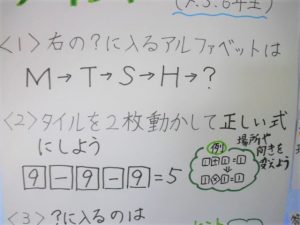 (7.3.6年生)
<1>右の?に入るアルファベットは
M→T→S→H→?
<2>タイルを2枚動かして正しい式
にしよう
9-9-9=5
例
1+1=1
1×1=1
場所や
向きを
変えよう
<3>?に入るのは
ヒント